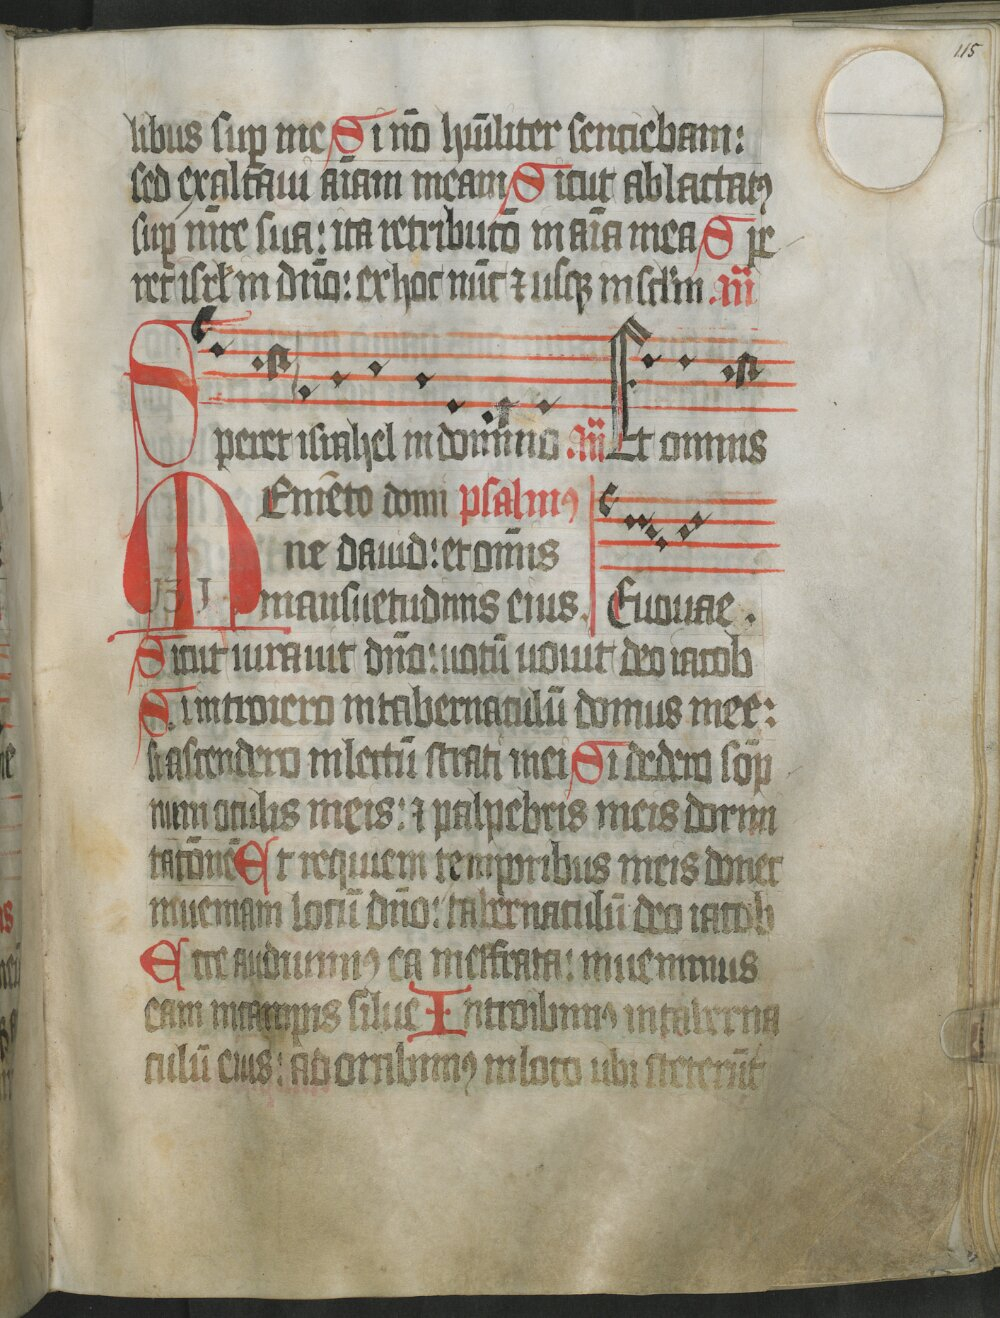 115
libus sup me Si nō hūiliter sentiebam:
sed exaltaui aīam meam Sicut ablactatꝰ
sup mr̄e sua: ita retributō in aīa mea Spe
ret isrł in dn̄o: ex hoc nūc ⁊ usqꝫ in sclm̄ añ
Speret israhel in domino añ Et omnis
Memēto domi psalmꝰ
ne dauid: et om̄is
131 mansuetudinis eius. Euouae.
Sicut iurauit dn̄o: uotū uouit deo iacob
Si introiero in tabernaculū domus mee:
si ascendero in lectū strati mei Si dedero sōp
num oculis meis: ⁊ palpebris meis dormi
tatōnē Et requiem temporibus meis donec
inueniam locū dn̄o: tabernaculū deo iacob
Ecce audiuimꝰ ea in effrata: inuenimus
eam in campis silue Introibimꝰ in taberna
culū eius: adorabimꝰ in loco ubi steterūt